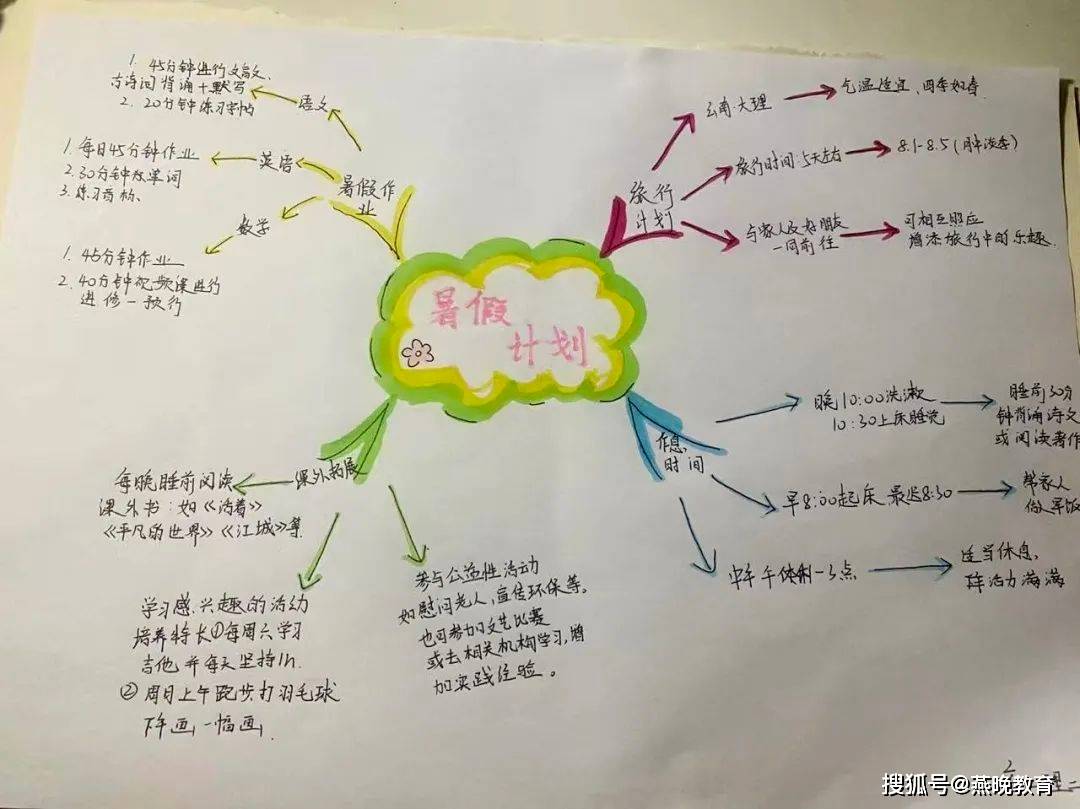 暑假
计划
暑假作
业
语文
1. 45分钟进行文言文、
古诗词背诵+默写
2. 20分钟练习字帖
英语
1. 每日45分钟作业
2. 30分钟 单词
3. 练习音标、
数学
1. 45分钟作业
2. 40分钟视频课进行
进修一预行
旅行
计划
云南·大理
气温适宜、四季如春.
旅行时间:5天左右
8.1-8.5(图中淡季)
与家人及好朋友
一同前往
可相互照应
增添旅行中的乐趣.
作息
时间
晚10:00洗漱
10:30上床睡觉
睡前30分
钟背诵诗文
或阅读著作
早8:00起床.最迟8:30
帮家人
做早饭
中午 午休 -3点
适当休息,
活力满满
课外拓展
每晚睡前阅读
课外书:如《活着》
《平凡的世界》《江城》等.
学习感兴趣的活动
培养特长①每周六学习
吉他并每天坚持1h.
②周日上午跑步打羽毛球
下午画一幅画.
参与公益性活动
如慰问老人,宣传环保等.
也可参加文艺比赛
或去相关机构学习,增
加实践经验。
搜狐号@燕晚教育